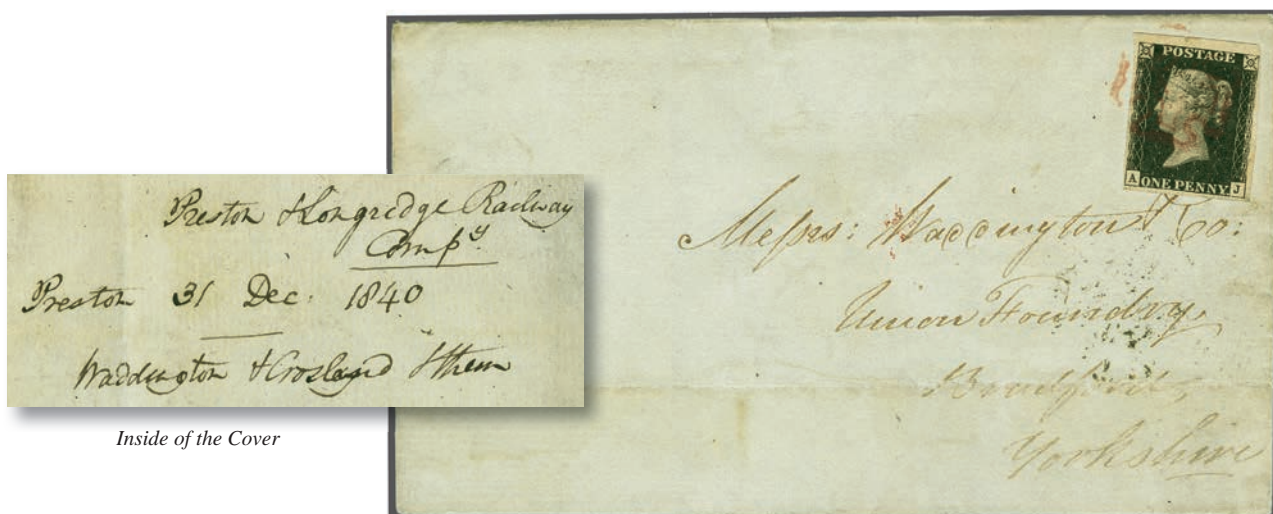 Preston & Longredge Railway
Compy
Preston 31 Dec. 1840
Waddington & Crosland & them
Inside of the Cover
POSTAGE
A ONE PENNY J
Messrs: Waddington & Co:
Union Foundry,
Bradford,
Yorkshire